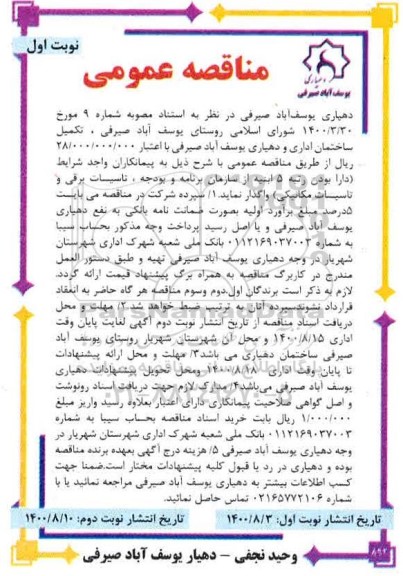 نوبت اول
دهیاری
یوسف آباد صیرفی
مناقصه عمومی
دهیاری یوسف‌آباد صیرفی در نظر به استناد مصوبه شماره ۹ مورخ
۱۴۰۰/۳/۳۰ شورای اسلامی روستای یوسف آباد صیرفی ، تکمیل
ساختمان اداری و دهیاری یوسف آباد صیرفی با اعتبار ۲۸/۰۰۰/۰۰۰/۰۰۰
ریال از طریق مناقصه عمومی با شرح ذیل به پیمانکاران واجد شرایط
(دارا بودن رتبه ۵ ابنیه از سازمان برنامه و بودجه ، تاسیسات برقی و
تاسیسات مکانیکی) واگذار نماید.۱/ سپرده شرکت در مناقصه می بایست
۵درصد مبلغ برآورد اولیه بصورت ضمانت نامه بانکی به نفع دهیاری
یوسف آباد صیرفی و یا اصل رسید پرداخت وجه مذکور بحساب سیبا
به شماره ۰۱۱۲۱۶۹۰۳۷۰۰۳ بانک ملی شعبه شهرک اداری شهرستان
شهریار در وجه دهیاری یوسف آباد صیرفی تهیه و طبق دستور العمل
مندرج در کاربرگ مناقصه به همراه برگ پیشنهاد قیمت ارائه گردد.
لازم به ذکر است برندگان اول،دوم وسوم مناقصه هر گاه حاضر به انعقاد
قرارداد نشوند سپرده آنان به ترتیب ضبط خواهد شد .۲/ مهلت و محل
دریافت اسناد مناقصه از تاریخ انتشار نوبت دوم آگهی لغایت پایان وقت
اداری ۱۴۰۰/۸/۱۵ و محل آن شهرستان شهریار روستای یوسف آباد
صیرفی ساختمان دهیاری می باشد۳/ مهلت و محل ارائه پیشنهادات
تا پایان وقت اداری ۱۴۰۰/۸/۱۸ ومحل تحویل پیشنهادات دهیاری
یوسف آباد صیرفی می‌باشد۴/ مدارک لازم جهت دریافت اسناد رونوشت
و اصل گواهی صلاحیت پیمانکاری دارای اعتبار بعلاوه رسید واریز مبلغ
۱/۰۰۰/۰۰۰ ریال بابت خرید اسناد مناقصه بحساب سیبا به شماره
۰۱۱۲۱۶۹۰۳۷۰۰۳ بانک ملی شعبه شهرک اداری شهرستان شهریار در
وجه دهیاری یوسف آباد صیرفی ۵/ هزینه درج آگهی بعهده برنده مناقصه
بوده و دهیاری در رد یا قبول کلیه پیشنهادات مختار است.ضمنا جهت
کسب اطلاعات بیشتر به دهیاری یوسف آباد صیرفی مراجعه نمائید یا با
شماره ۰۲۱۶۵۷۷۲۱۰۶ تماس حاصل نمائید.
تاریخ انتشار نوبت اول: ۱۴۰۰/۸/۳ تاریخ انتشار نوبت دوم: ۱۴۰۰/۸/۱۰
وحید نجفی – دهیار یوسف آباد صیرفی